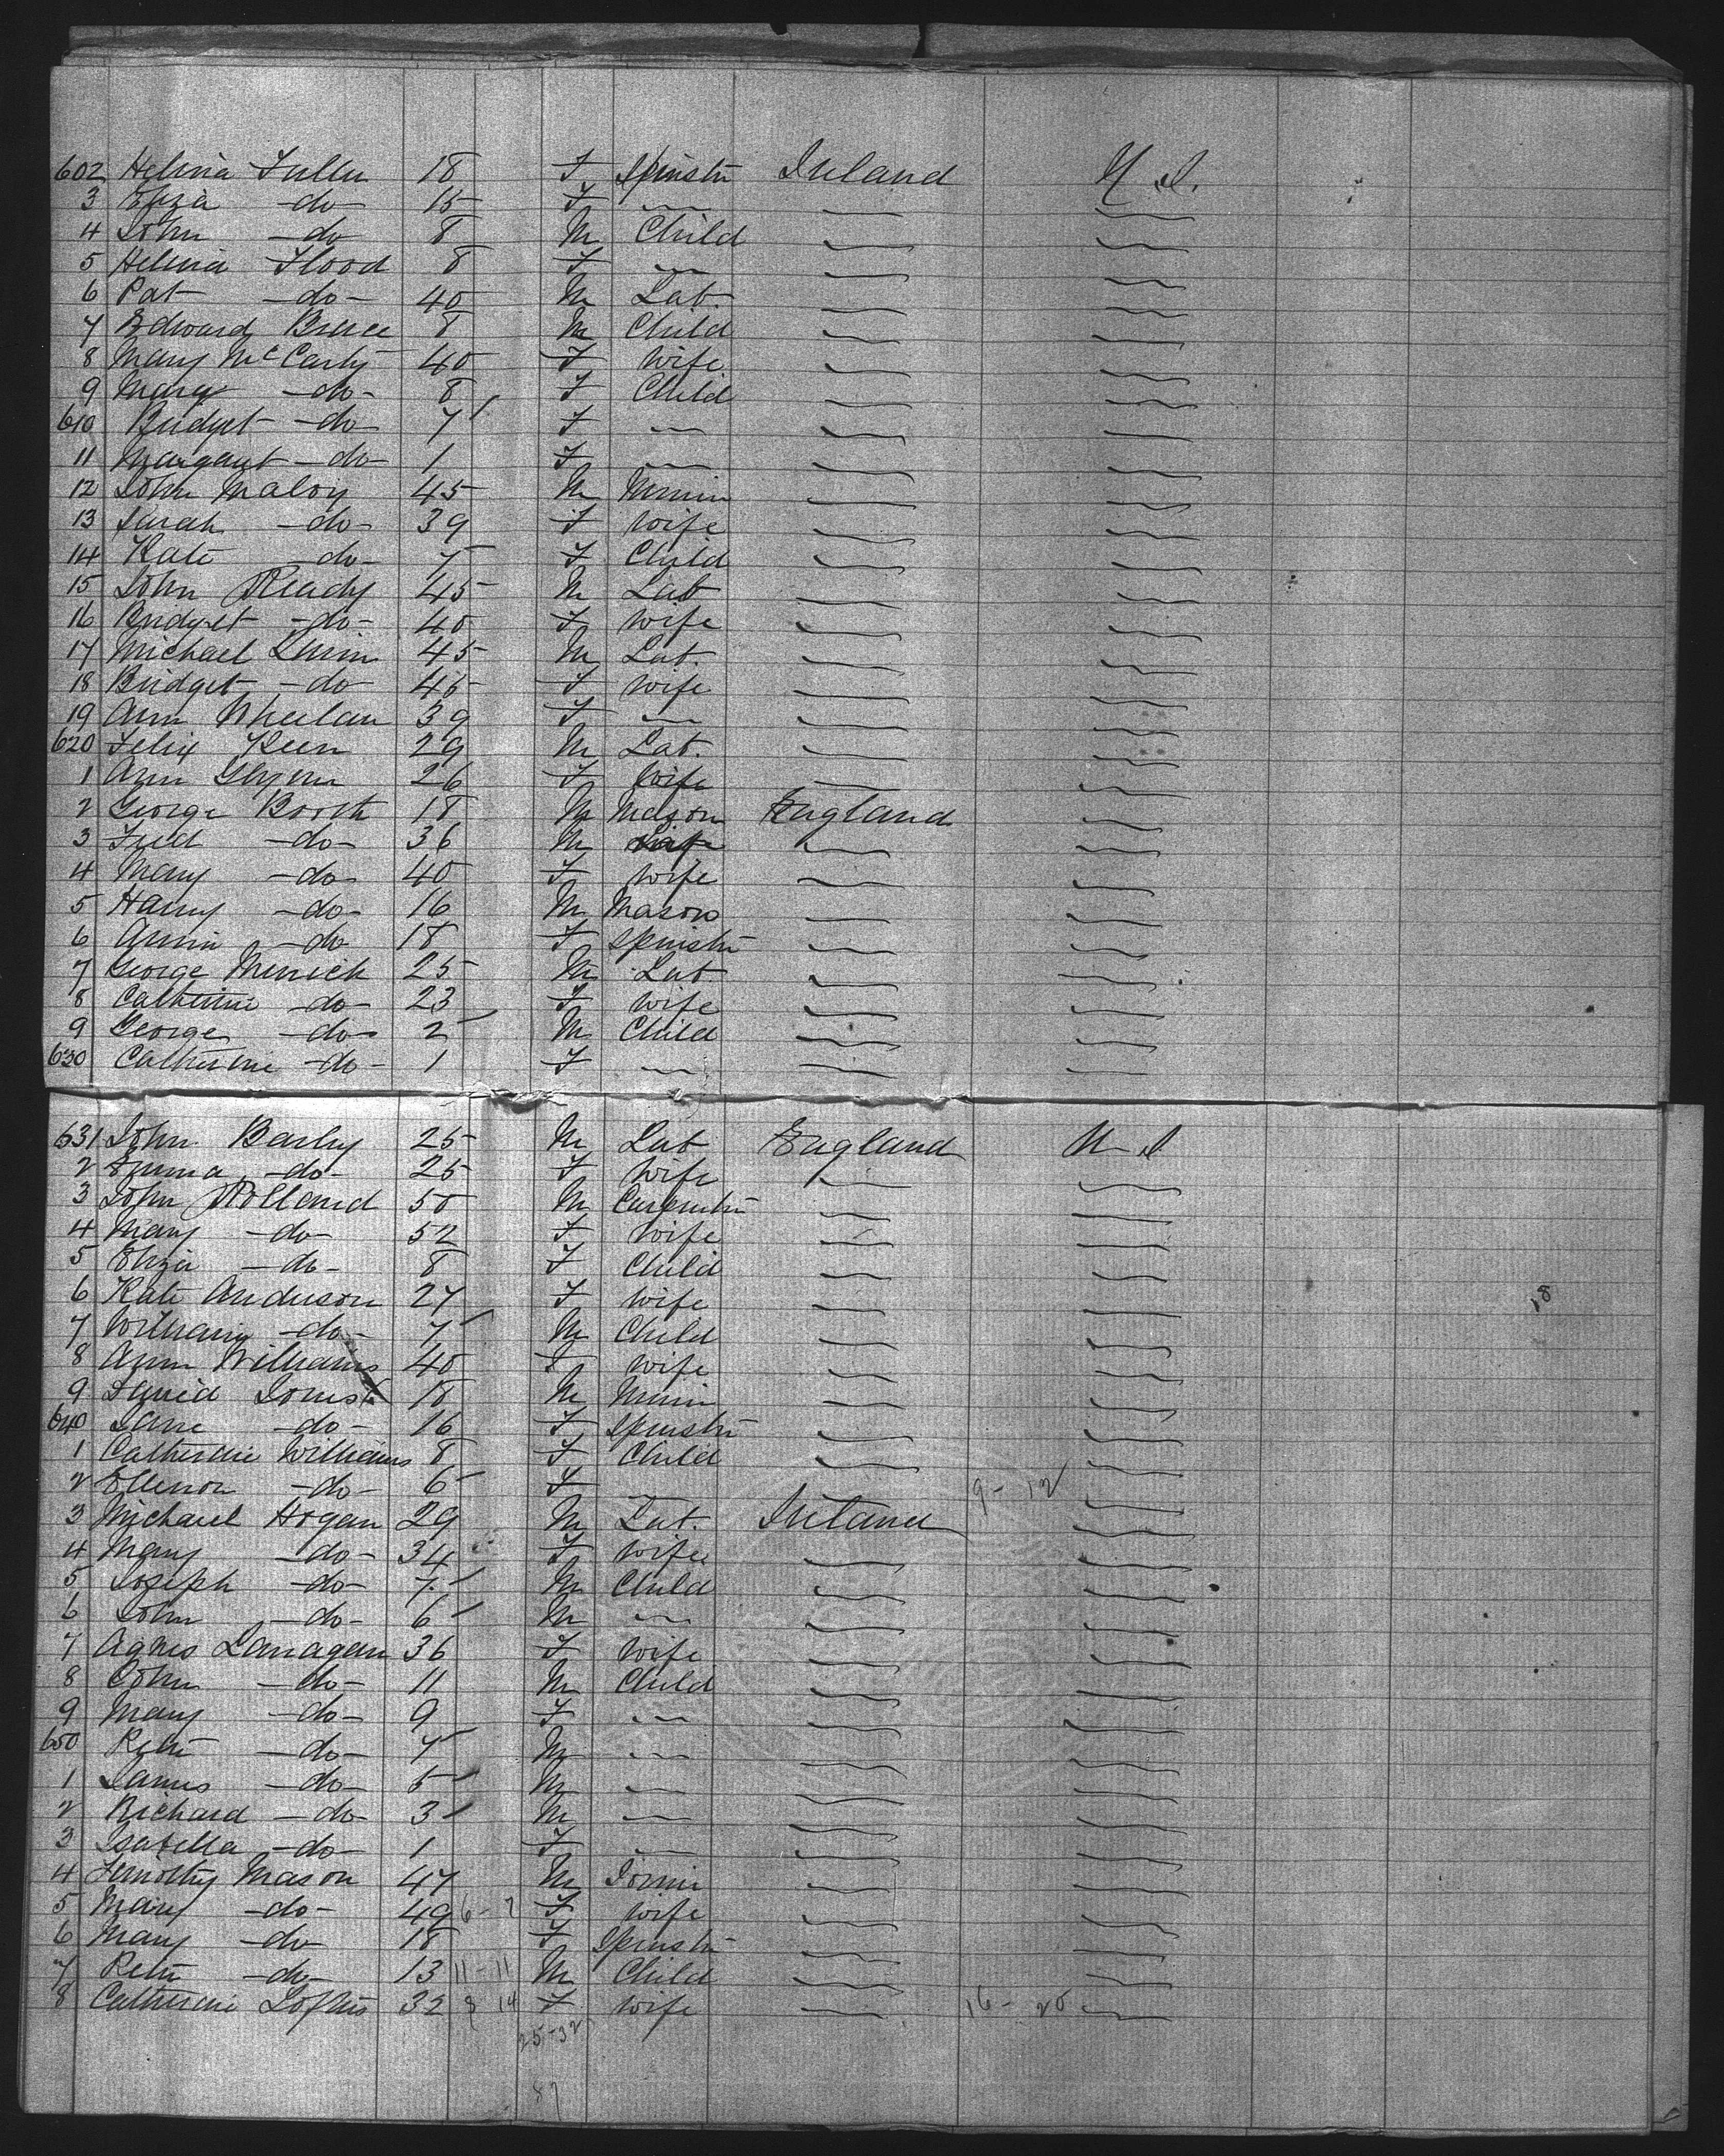 602 Helena Fuller 18 F Spinstr Ireland U.S.
3 Eliza -do- 15 F
4 John -do- 8 M Child
5 Helena Flood 8 F
6 Pat -do- 40 M Lab.
7 Edward Bruce 8 M Child
8 Mary McCarty 40 F Wife
9 Mary -do- 8 F Child
610 Bridget -do- 7 F
11 Margaret -do- 1 F
12 John Maloy 45 M
13 Sarah -do- 39 F Wife
14 Kate -do- 7 F Child
15 John Ready 45 M Lab
16 Bridget -do- 40 F Wife
17 Michael 45 M Lab.
18 Bridget -do- 45 F Wife
19 Ann Wheelan 39 F
620 Felix Keen 29 M Lab.
1 Ann Glynn 26 F Wife
2 George Booth 18 M Mason England
3 Fred -do- 36 M
4 Mary -do- 40 F Wife
5 Harry -do- 16 M Mason
6 Annie -do- 18 F Spinstr
7 George 25 M Lab
8 Catherine -do- 23 F Wife
9 George -do- 2 M Child
630 Catherine -do- 1 F
631 John 25 M Lab England U S
2 Emma -do- 25 F Wife
3 John Rolland 50 M Carpentr
4 Mary -do- 52 F Wife
5 Eliza -do- 8 F Child
6 Kate Anderson 27 F Wife
7 William -do- 7 M Child
8 Ann Williams 40 F Wife
9 David Jones 18 M Miner
640 Jane -do- 16 F Spinstr
1 Catherine Williams 8 F Child
2 Ellenor -do- 6 F 9 - 12
3 Michael Hogan 29 M Lab. Ireland
4 Mary -do- 34 F Wife
5 Joseph -do- 7 M Child
6 John -do- 6 M
7 Agnes Lanagan 36 F Wife
8 John -do- 11 M Child
9 Mary -do- 9 F
650 Peter -do- 7 M
1 James -do- 5 M
2 Richard -do- 3 M
3 Isabella -do- 1 F
4 Timothy Mason 47 M
5 Mary -do- 49 6 - 7 F Wife
6 Mary -do- 18 F Spinstr
7 Peter -do- 13 11 - 11 M Child
8 Catherine Loftus 32 8 14 F Wife 16 - 20
25-32